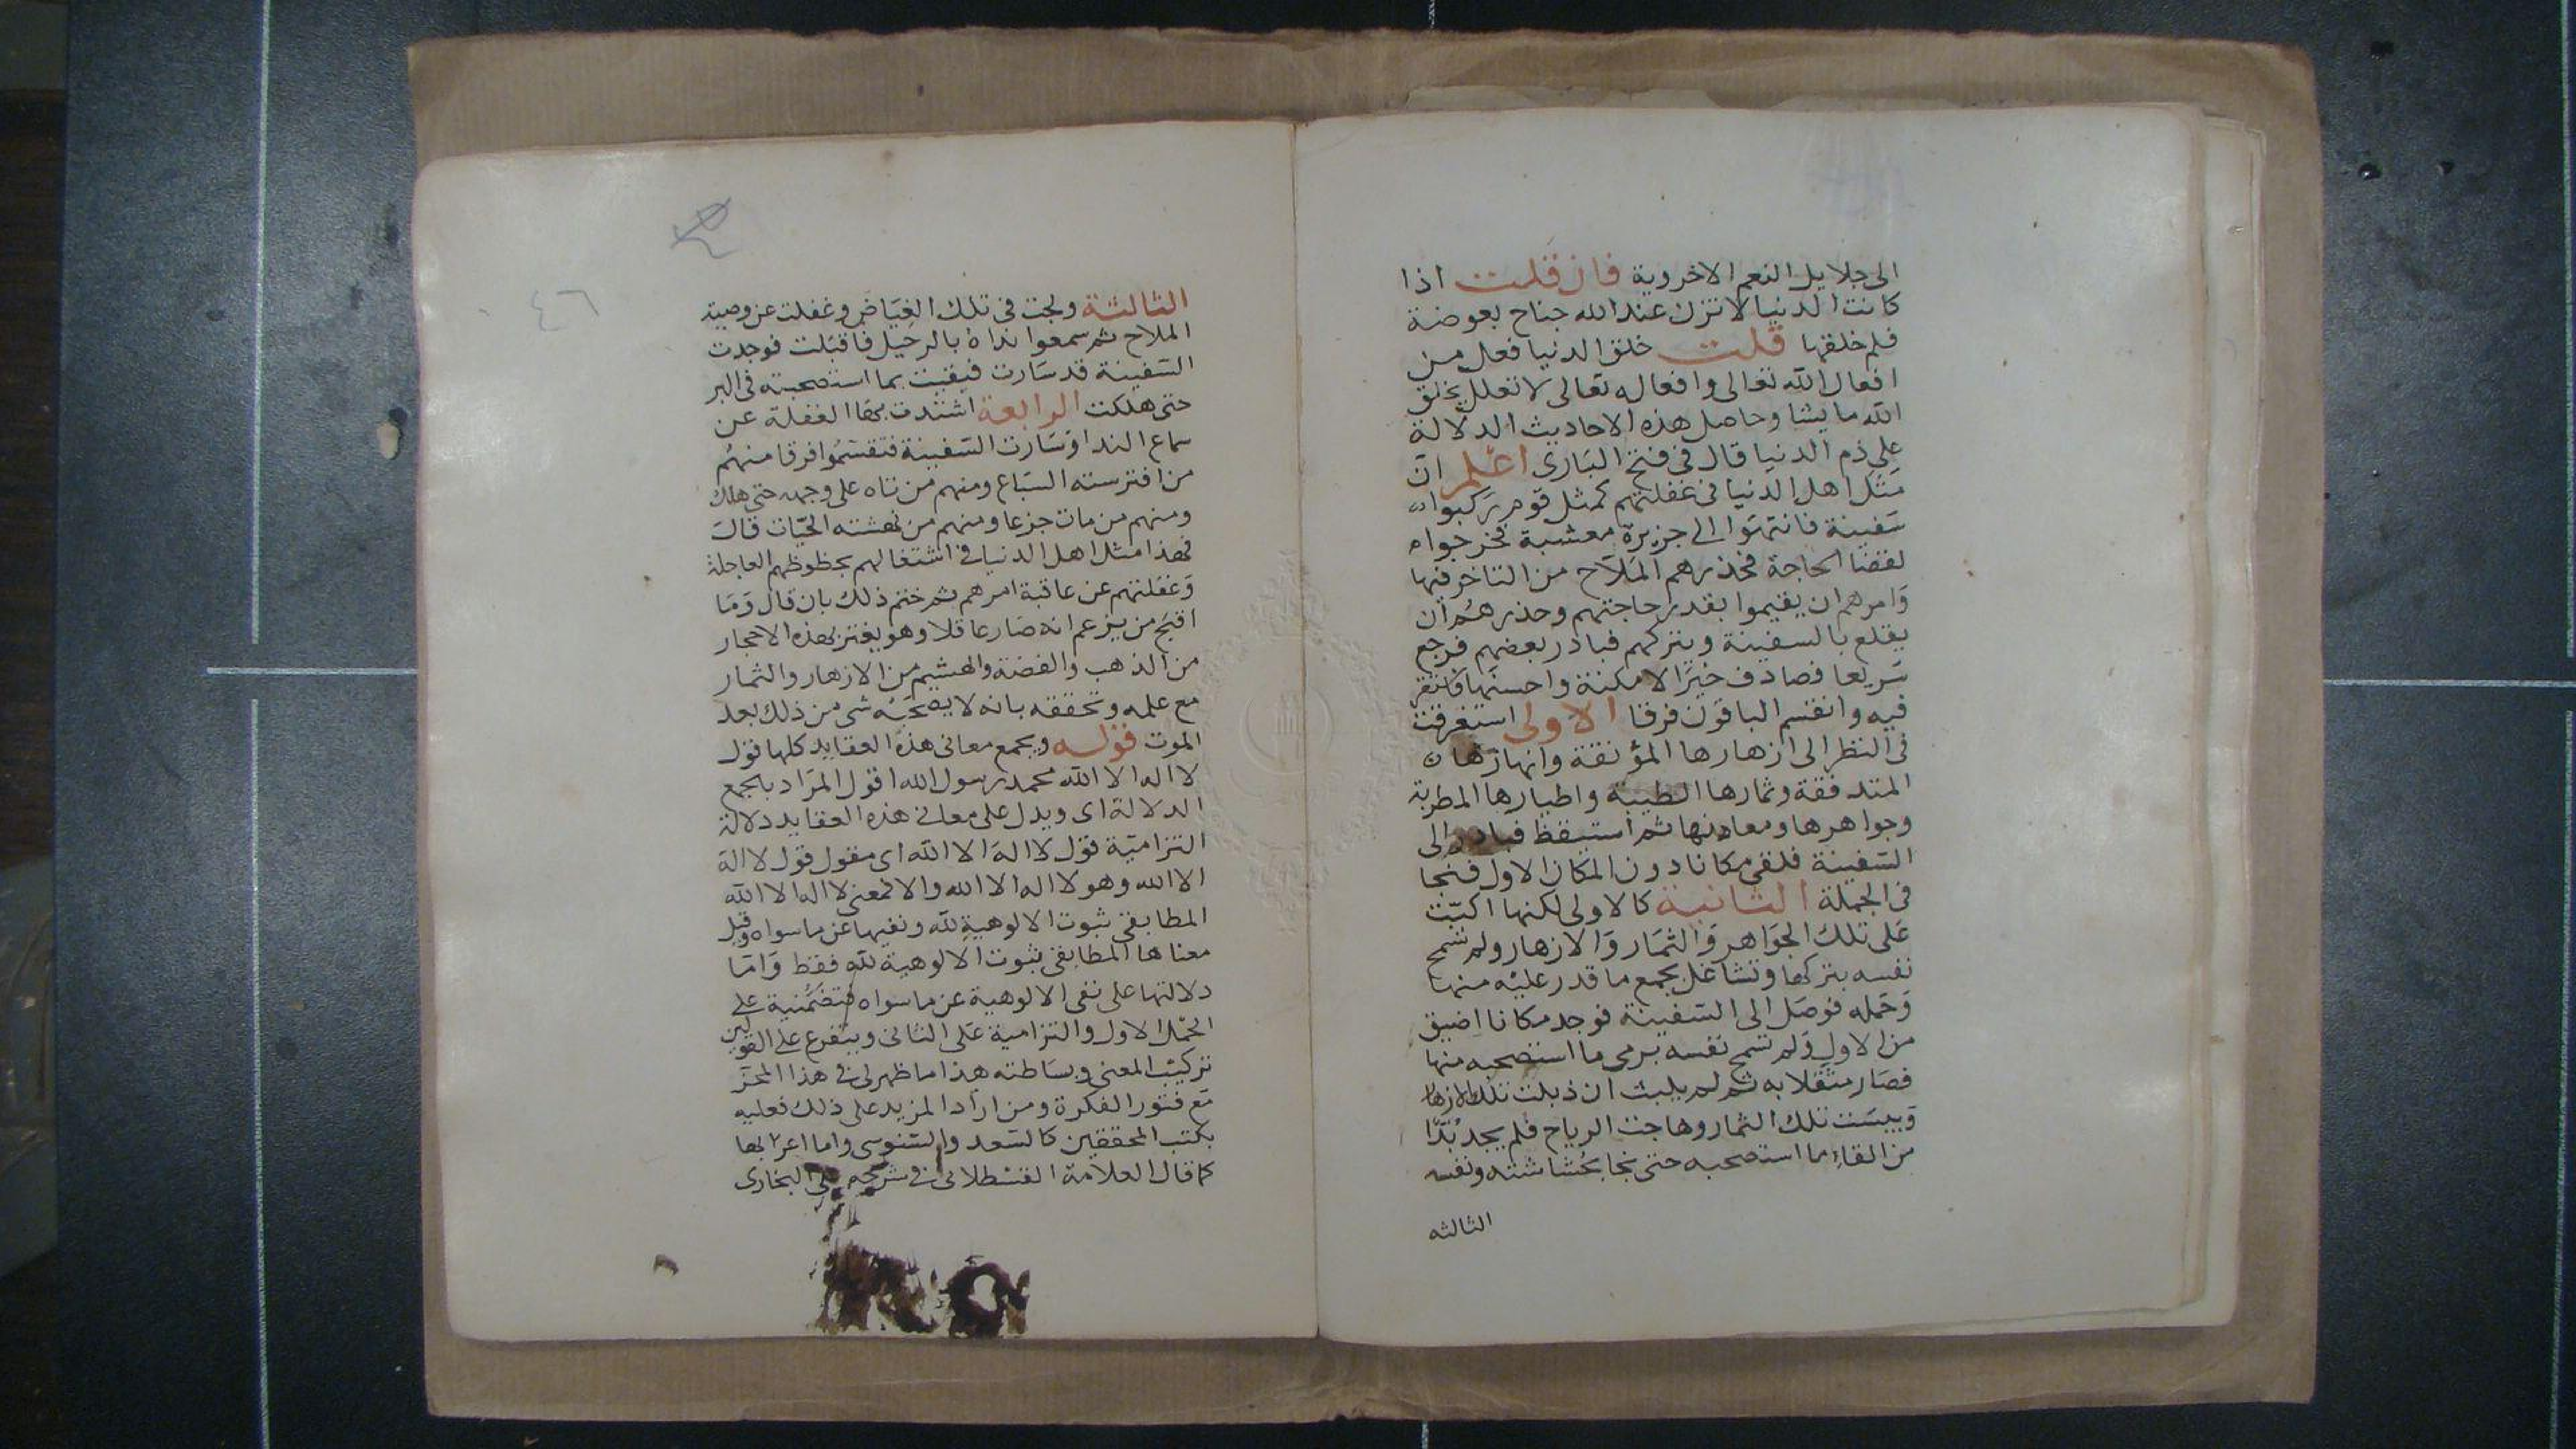 الى جلايل النعم الاخروية فان قلت اذا
كانت الدنيا لا تزن عند الله جناح بعوضة
فلم خلقها قلت خلق الدنيا فعل من
افعال الله تعالى وافعاله تعالى لا تعلل يخلق
الله ما يشا وحاصل هذه الاحاديث الدلالة
على ذم الدنيا قال في فتح البارى اعلم ان
مثل اهل الدنيا في غفلتهم كمثل قوم ركبوا
سفينة فانتهوا الى جزيرة معشبة فخرجوا
لقضا الحاجة فحذرهم الملاح من التاخر فيها
وامرهم ان يقيموا بقدر حاجتهم وحذرهم ان
يقلع بالسفينة ويتركهم فبادر بعضهم فرجع
سريعا فصادف خير الامكنة واحسنها فاستقر
فيه وانقسم الباقون فرقا الاولى استغرقت
في النظر الى ازهارها المؤنقة وانهارها
المتدفقة وثمارها الطيبة واطيارها المطربة
وجواهرها ومعادنها ثم استيقظ فبادر الى
السفينة فلقى مكانا دون المكان الاول فنجا
في الجملة الثانية كالاولى لكنها اكبت
على تلك الجواهر والثمار والازهار ولم تسمح
نفسه بتركها وتشاغل بجمع ما قدر عليه منها
وحمله فوصل الى السفينة فوجد مكانا اضيق
من الاول ولم تسمح نفسه برمى ما استصحبه منها
فصار مثقلا به ثم لم يلبث ان ذبلت تلك الازهار
ويبست تلك الثمار وهاجت الرياح فلم يجد بدا
من القاء ما استصحبه حتى نجا بحشاشته ونفسه
الثالثه
٤٦
الثالثة ولجت في تلك الغياض وغفلت عن وصية
الملاح ثم سمعوا نداه بالرحيل فاقبلت فوجدت
السفينة قد سارت فبقيت بما استصحبته في البر
حتى هلكت الرابعة اشتدت بها الغفلة عن
سماع الندا وسارت السفينة فتقسموا فرقا منهم
من افترسته السباع ومنهم من تاه على وجهه حتى هلك
ومنهم من مات جزعا ومنهم من نهشته الحيات قال
فهذا مثل اهل الدنيا في اشتغالهم بحظوظهم العاجلة
وغفلتهم عن عاقبة امرهم ثم ختم ذلك بان قال وما
اقبح من يزعم انه صار عاقلا وهو يغتر بهذه الاحجار
من الذهب والفضة والهشيم من الازهار والثمار
مع علمه وتحققه بانه لا يصحبه شى من ذلك بعد
الموت قوله ويجمع معانى هذه العقايد كلها قول
لا اله الا الله محمد رسول الله اقول المراد بالجمع
الدلالة اى ويدل على معانى هذه العقايد دلالة
التزامية قول لا اله الا الله اى مقول قول لا اله
الا الله وهو لا اله الا الله والا فمعنى لا اله الا الله
المطابقى ثبوت الالوهية لله ونفيها عن ما سواه وقيل
معناها المطابقى ثبوت الالوهية لله فقط واما
دلالتها على نفى الالوهية عن ما سواه فتضمنية على
الاول والتزامية على الثانى ويتفرع على القولين
تركيب المعنى وبساطته هذا ما ظهر لى في هذا
مع فتور الفكرة ومن اراد المزيد على ذلك فعليه
بكتب المحققين كالسعد والسنوسى واما اعرابها
كما قال العلامة القسطلانى في شرحه على البخارى